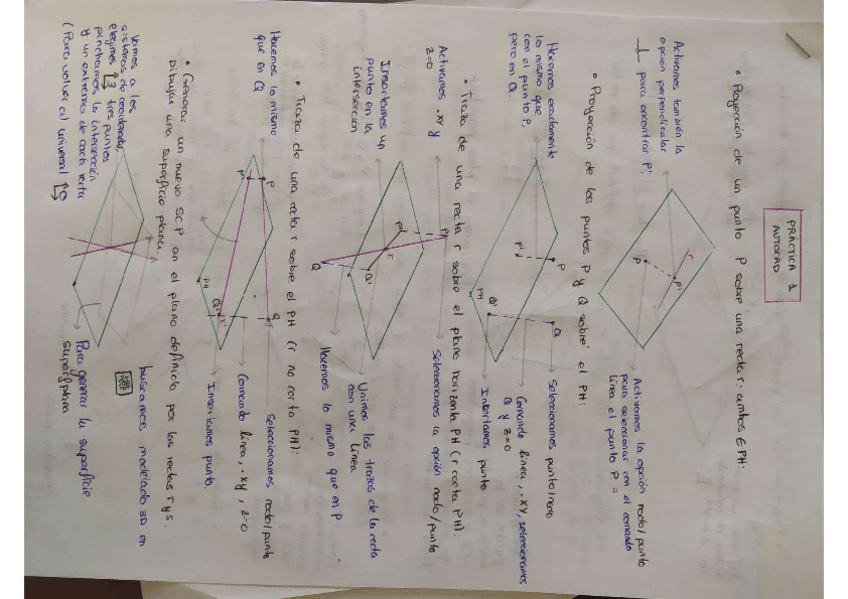 PRÁCTICA 1
AUTOCAD
• Proyección de un punto P sobre una recta r: ambos ∈ PH:
Activamos también la
opción perpendicular
para encontrar P':
r
P'
P
Activamos la opción nodo/punto
para seleccionar con el comando
línea el punto P.
• Proyección de los puntos P y Q sobre el PH:
Hacemos exactamente
lo mismo que
con el punto P,
pero en Q.
P
P'
Q
Q'
PH
Seleccionamos punto/nodo
Comando línea, .XY, seleccionamos
Q y z=0
Insertamos punto
• Traza de una recta r sobre el plano horizontal PH (r corta PH).
Activamos .xy
z=0
Insertamos un
punto en la
intersección
P'
r
Q'
Q
Seleccionamos la opción nodo/punto
Unimos las trazas de la recta
con una línea
Hacemos lo mismo que en P
• Traza de una recta r sobre el PH (r no corta PH):
Hacemos lo mismo
que en Q
P'
P
PH
Q'
r'
Q
Seleccionamos nodo/punto
Comando línea, .xy, z=0
Insertamos punto.
• Generar un nuevo SCP en el plano definido por las rectas r y s.
Dibujar una superficie plana.
Vamos a los
sistemas de coordenadas,
elegimos 3 tres puntos
pinchamos la intersección
y un extremo de cada recta
(Para volver al universal
buscamos modelado 3D en
Para generar la superficie
superfplan